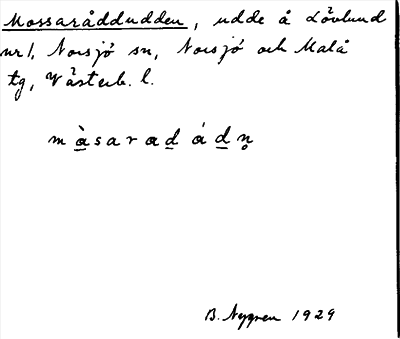 Mossaråddudden, udde å Lövlund
nr 1, Norsjö sn, Norsjö och Malå
tg, Västerb. l.
m à̲ s a r a d̲ á d̲ n̥
B. Nygren 1929